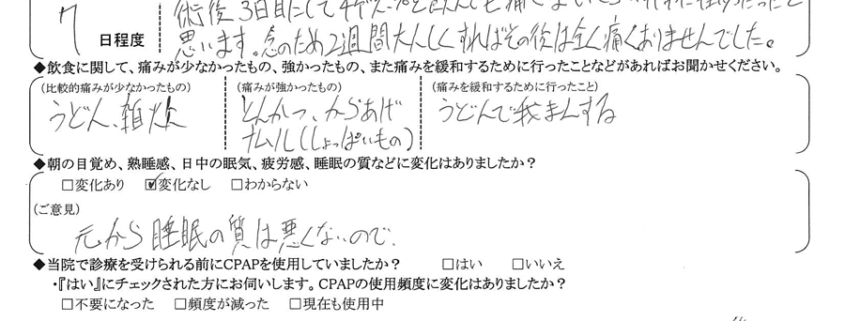 7
日程度
思います。念のため2週間大人しくすればその後は全く痛くありませんでした。
◆飲食に関して、痛みが少なかったもの、強かったもの、また痛みを緩和するために行ったことなどがあればお聞かせください。
(比較的痛みが少なかったもの) (痛みが強かったもの) (痛みを緩和するために行ったこと)
うどん、雑炊 とんかつ、からあげ うどんで我まんする
ナムル(しょっぱいもの)
◆朝の目覚め、熟睡感、日中の眠気、疲労感、睡眠の質などに変化はありましたか?
□変化あり ☑変化なし □わからない
(ご意見)
元から睡眠の質は悪くないので、
◆当院で診療を受けられる前にCPAPを使用していましたか? □はい □いいえ
・『はい』にチェックされた方にお伺いします。CPAPの使用頻度に変化はありましたか?
□不要になった □頻度が減った □現在も使用中